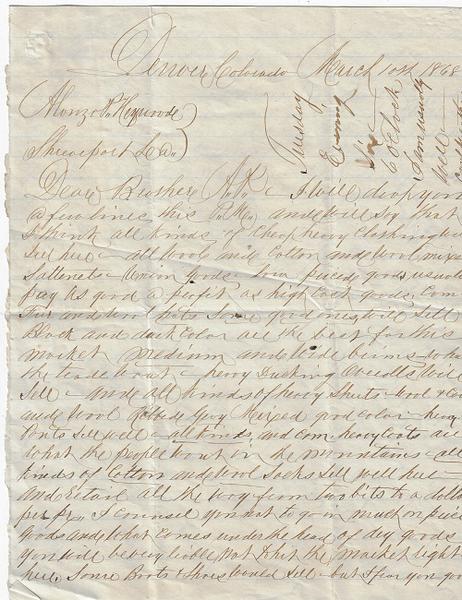 Denver Colorado March 10th 1868
Alonzo P.
Shreveport La.
Tuesday
Evening
Six
O Clock
Well
Dear Brother A. P. I will drop you
a few lines this P. M. and will say that
I think all kinds of Cheap heavy Clothing will
sell here all wool and Cotton and wool mixed
Sattenets Union Goods low priced goods usually
pay as good a profit as high cost goods Com
Fur and wool hats some good ones will sell
Black and dark color are the best for this
market medium and wide brims what
the trade want heavy Ducking Overalls will
sell and all kinds of heavy Shirts wool
and wool Grey Mixed good color heavy
Pants sell well all kinds and com. heavy Coats are
what the people want in the mountains all
kinds of Cotton and wool Socks sell well here
and retail all the way from two bits to a dollar
per Pr. I counsel you not to go in much on piece
goods and what comes under the head of dry goods
you will be very liable not to hit the market right
here Some Boots & Shoes would sell but I fear you